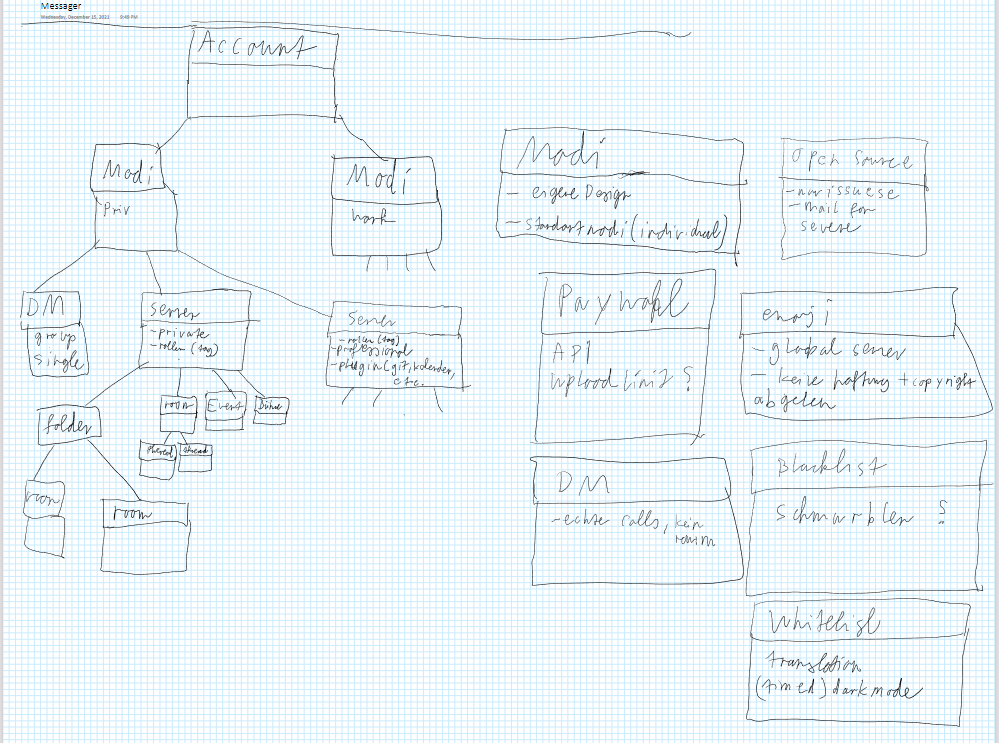 Messager
Wednesday, December 15, 2021 9:49 PM
Account
Modi
Priv
Modi
work
DM
group
single
Server
- private
- rollen (tag)
Server
- rollen (tag)
- professional
- plugin (git, kalender,
etc.
folder
room
Event
Bühne
thread
thread
room
room
Modi
- eigene Design
- standart modi (individual)
Open Source
- nur issuese
- mail for
severe
Paywahl
API
Upload Limit ?
emoji
- global server
- keine haftung + copyright
abgeben
DM
- echte calls, kein
raum
Blacklist
Schwurbler ?
Whitelist
translation
(timed) dark mode